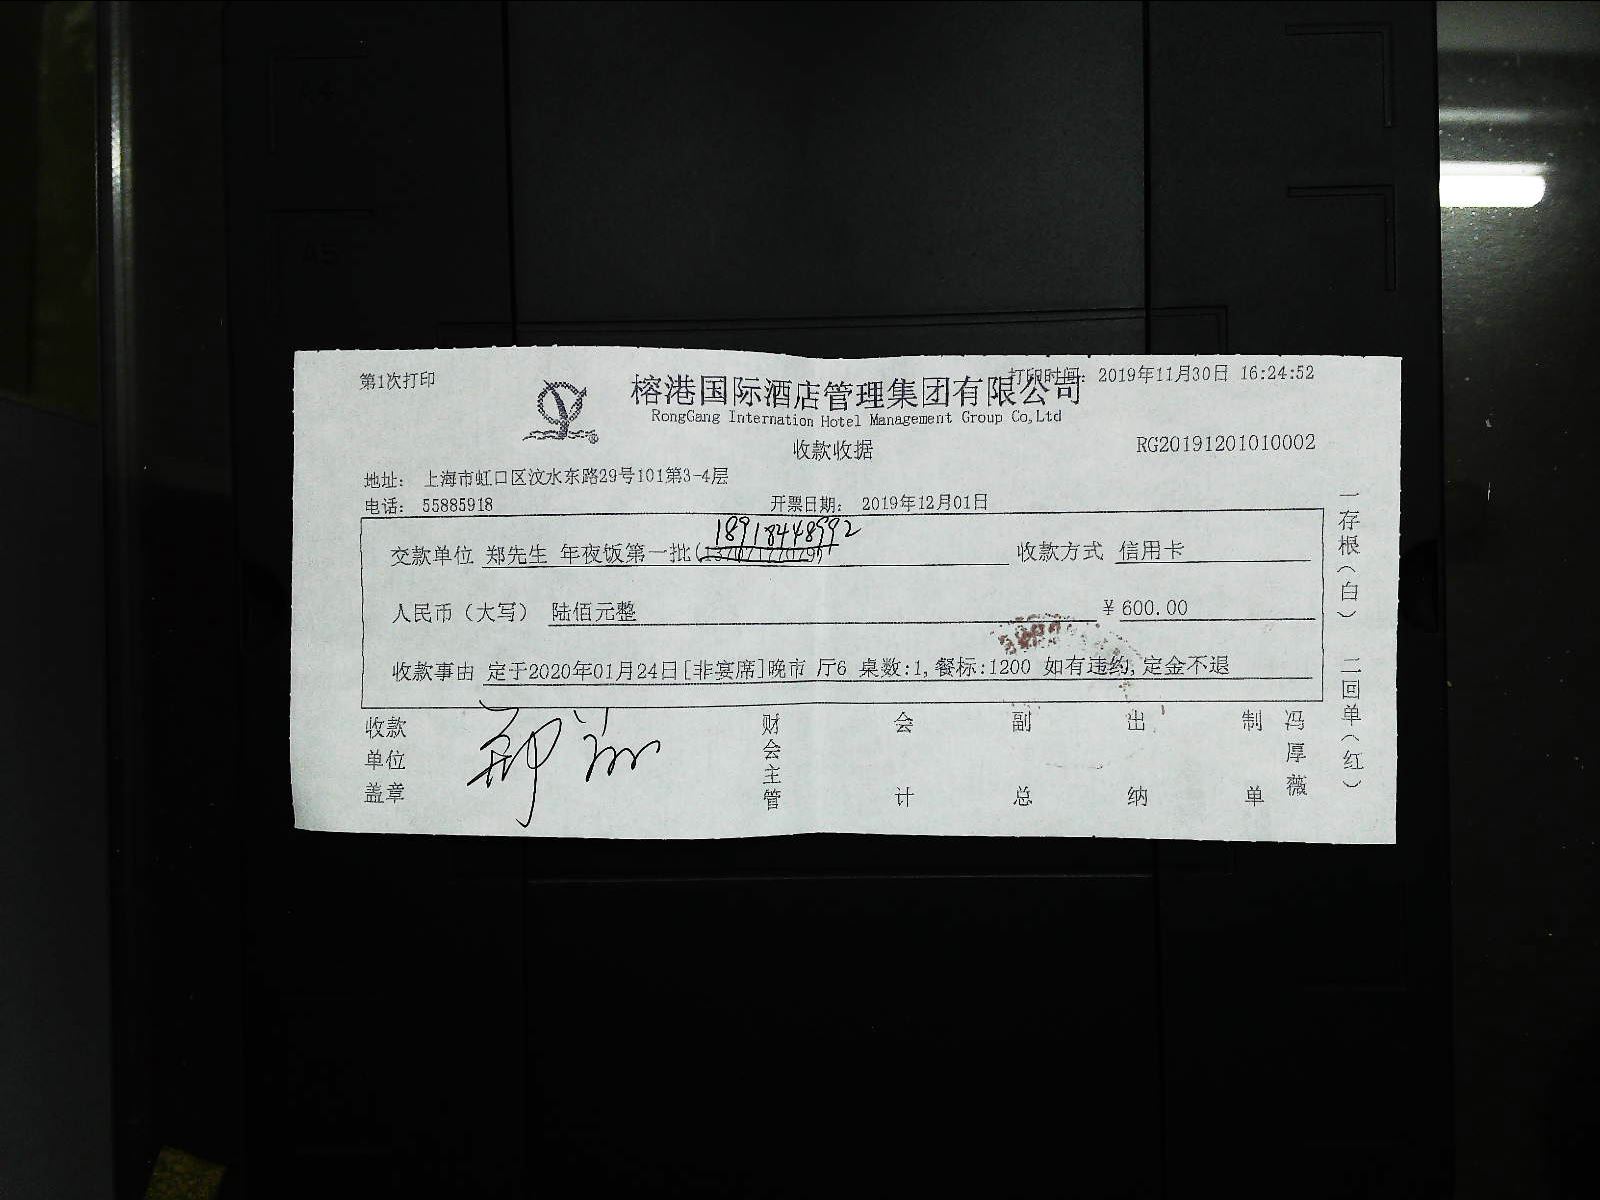 A4
A5
第1次打印
打印时间: 2019年11月30日 16:24:52
榕港国际酒店管理集团有限公司
RongGang Internation Hotel Management Group Co,Ltd
收款收据
RG20191201010002
地址: 上海市虹口区汶水东路29号101第3-4层
电话: 55885918
开票日期: 2019年12月01日
18918448992
交款单位 郑先生 年夜饭第一批 收款方式 信用卡
人民币（大写） 陆佰元整 ¥600.00
收款事由 定于2020年01月24日[非宴席]晚市 厅6 桌数:1,餐标:1200 如有违约,定金不退
收款单位盖章
财会主管
会计
副总
出纳
制单
冯厚薇
一存根（白） 二回单（红）